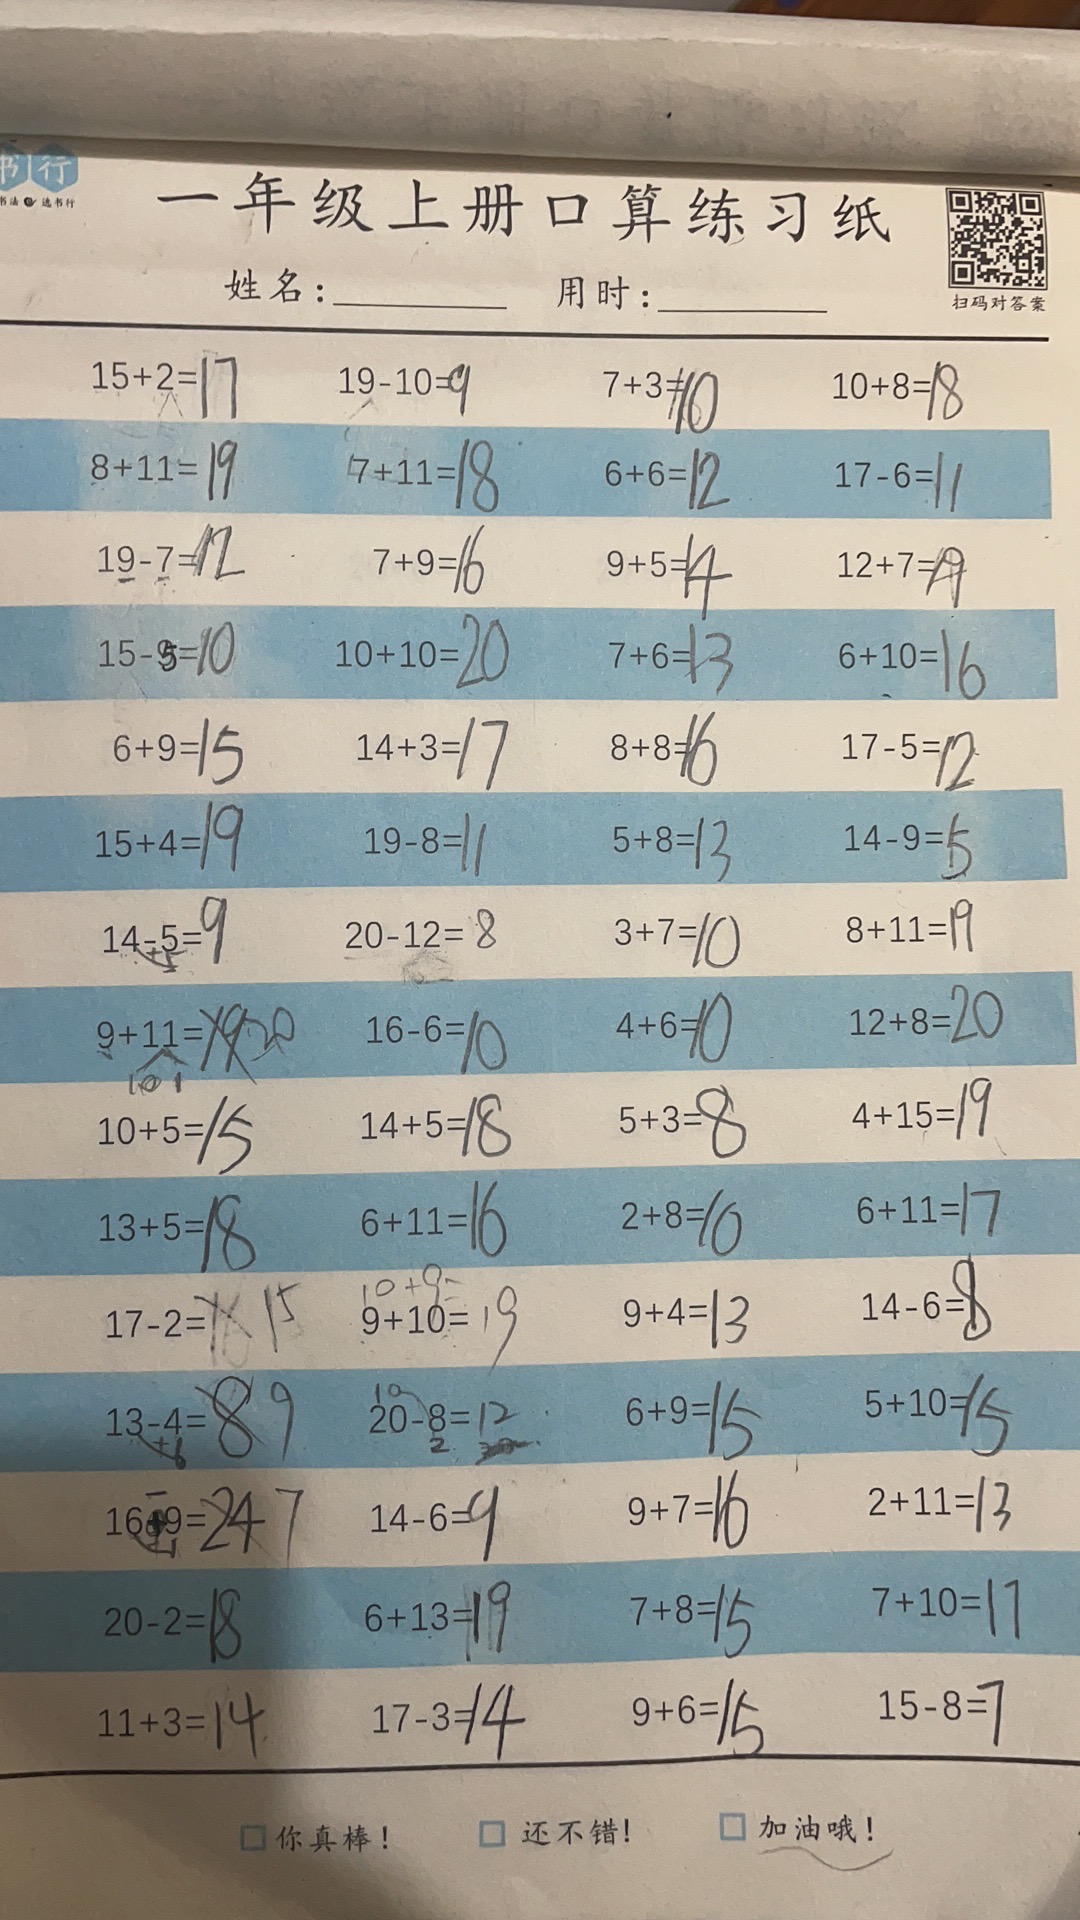 书行
书法 选书行
一年级上册口算练习纸
姓名： 用时：
扫码对答案
15+2=17 19-10=9 7+3=10 10+8=18
8+11=19 7+11=18 6+6=12 17-6=11
19-7=12 7+9=16 9+5=14 12+7=19
15-5=10 10+10=20 7+6=13 6+10=16
6+9=15 14+3=17 8+8=16 17-5=12
15+4=19 19-8=11 5+8=13 14-9=5
14-5=9 20-12=8 3+7=10 8+11=19
+5
9+11=19 20 16-6=10 4+6=10 12+8=20
10 1
10+5=15 14+5=18 5+3=8 4+15=19
13+5=18 6+11=16 2+8=10 6+11=17
10+9=
17-2=16 15 9+10=19 9+4=13 14-6=8
10
13-4=8 9 20-8=12 6+9=15 5+10=15
+6 2
16-9=24 7 14-6=9 9+7=16 2+11=13
20-2=18 6+13=19 7+8=15 7+10=17
11+3=14 17-3=14 9+6=15 15-8=7
你真棒！ 还不错！ 加油哦！